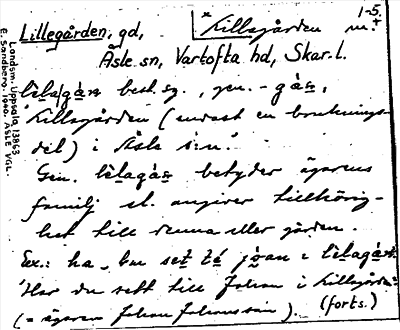 1-5.
Lillegården, gd, * Lillegården m. +
Åsle sn, Vartofta hd, Skar. l.
best. sg., gen. -
Lillegården (endast en bruknings-
del) i Åsle s:n.
Gen. betyder ägarens
familj el. angiver tillhörig-
het till denna eller gården.
Ex.: ha du
'Har du sett till Johan i Lillegården'
(= ägaren Johan Johansson). (forts.)
Landsm. Uppsala 13863
E. Sandberg. 1940. ÅSLE VGL.